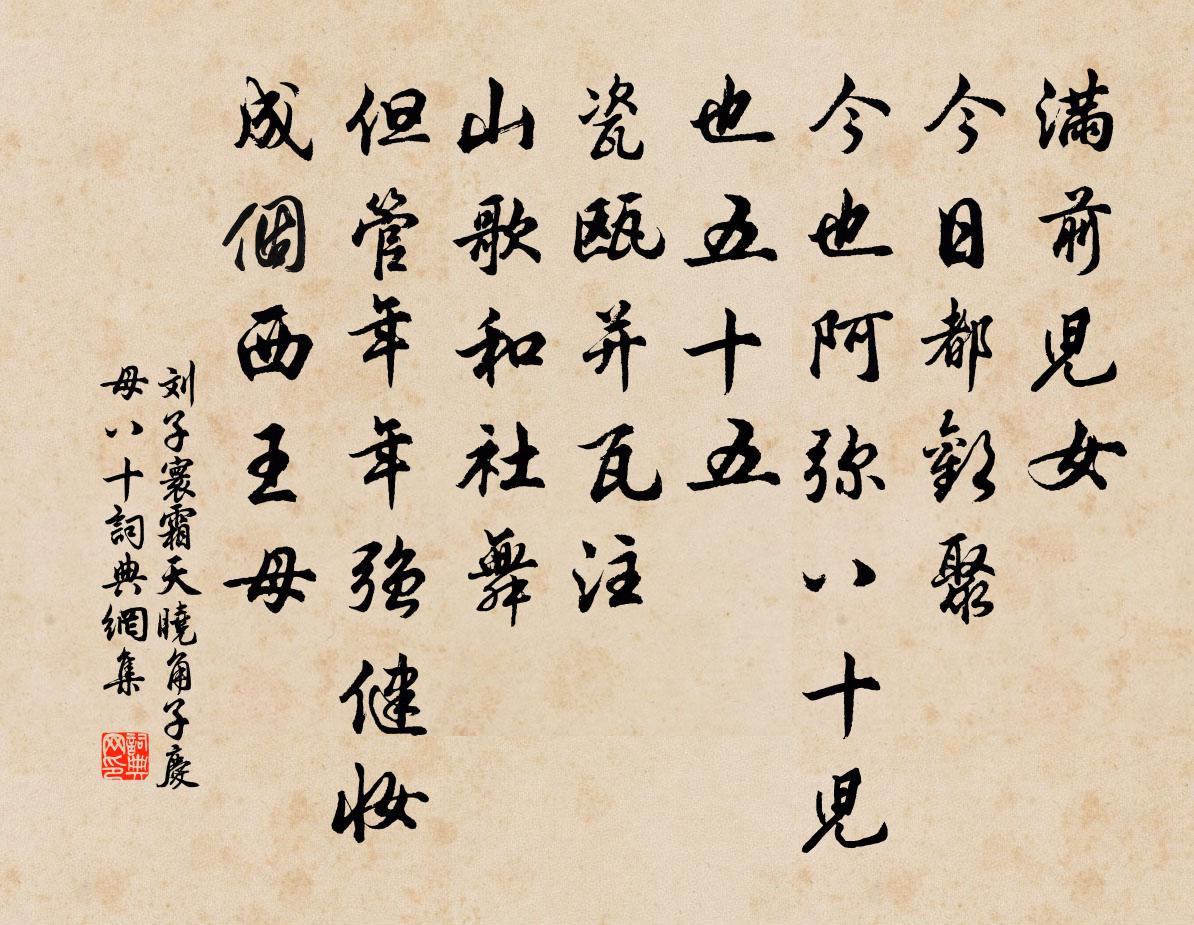 満前児女
今日都歡聚
今也阿弥八十児
也五十五
瓷瓯并瓦注
山歌和社舞
但管年年强健妆
成個西王母
刘子寰霜天曉角子慶
母八十詞典網集
詞典网印